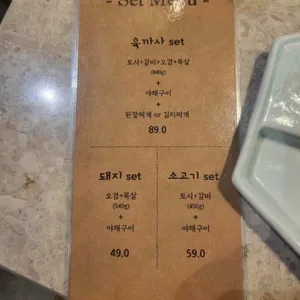 - Set Menu -
육까사 set
토시+갈비+오겹+목살
(840g)
+
야채구이
+
된장찌개 or 김치찌개
89.0
돼지 set
오겹+목살
(540g)
+
야채구이
49.0
소고기 set
토시+갈비
(450g)
+
야채구이
59.0